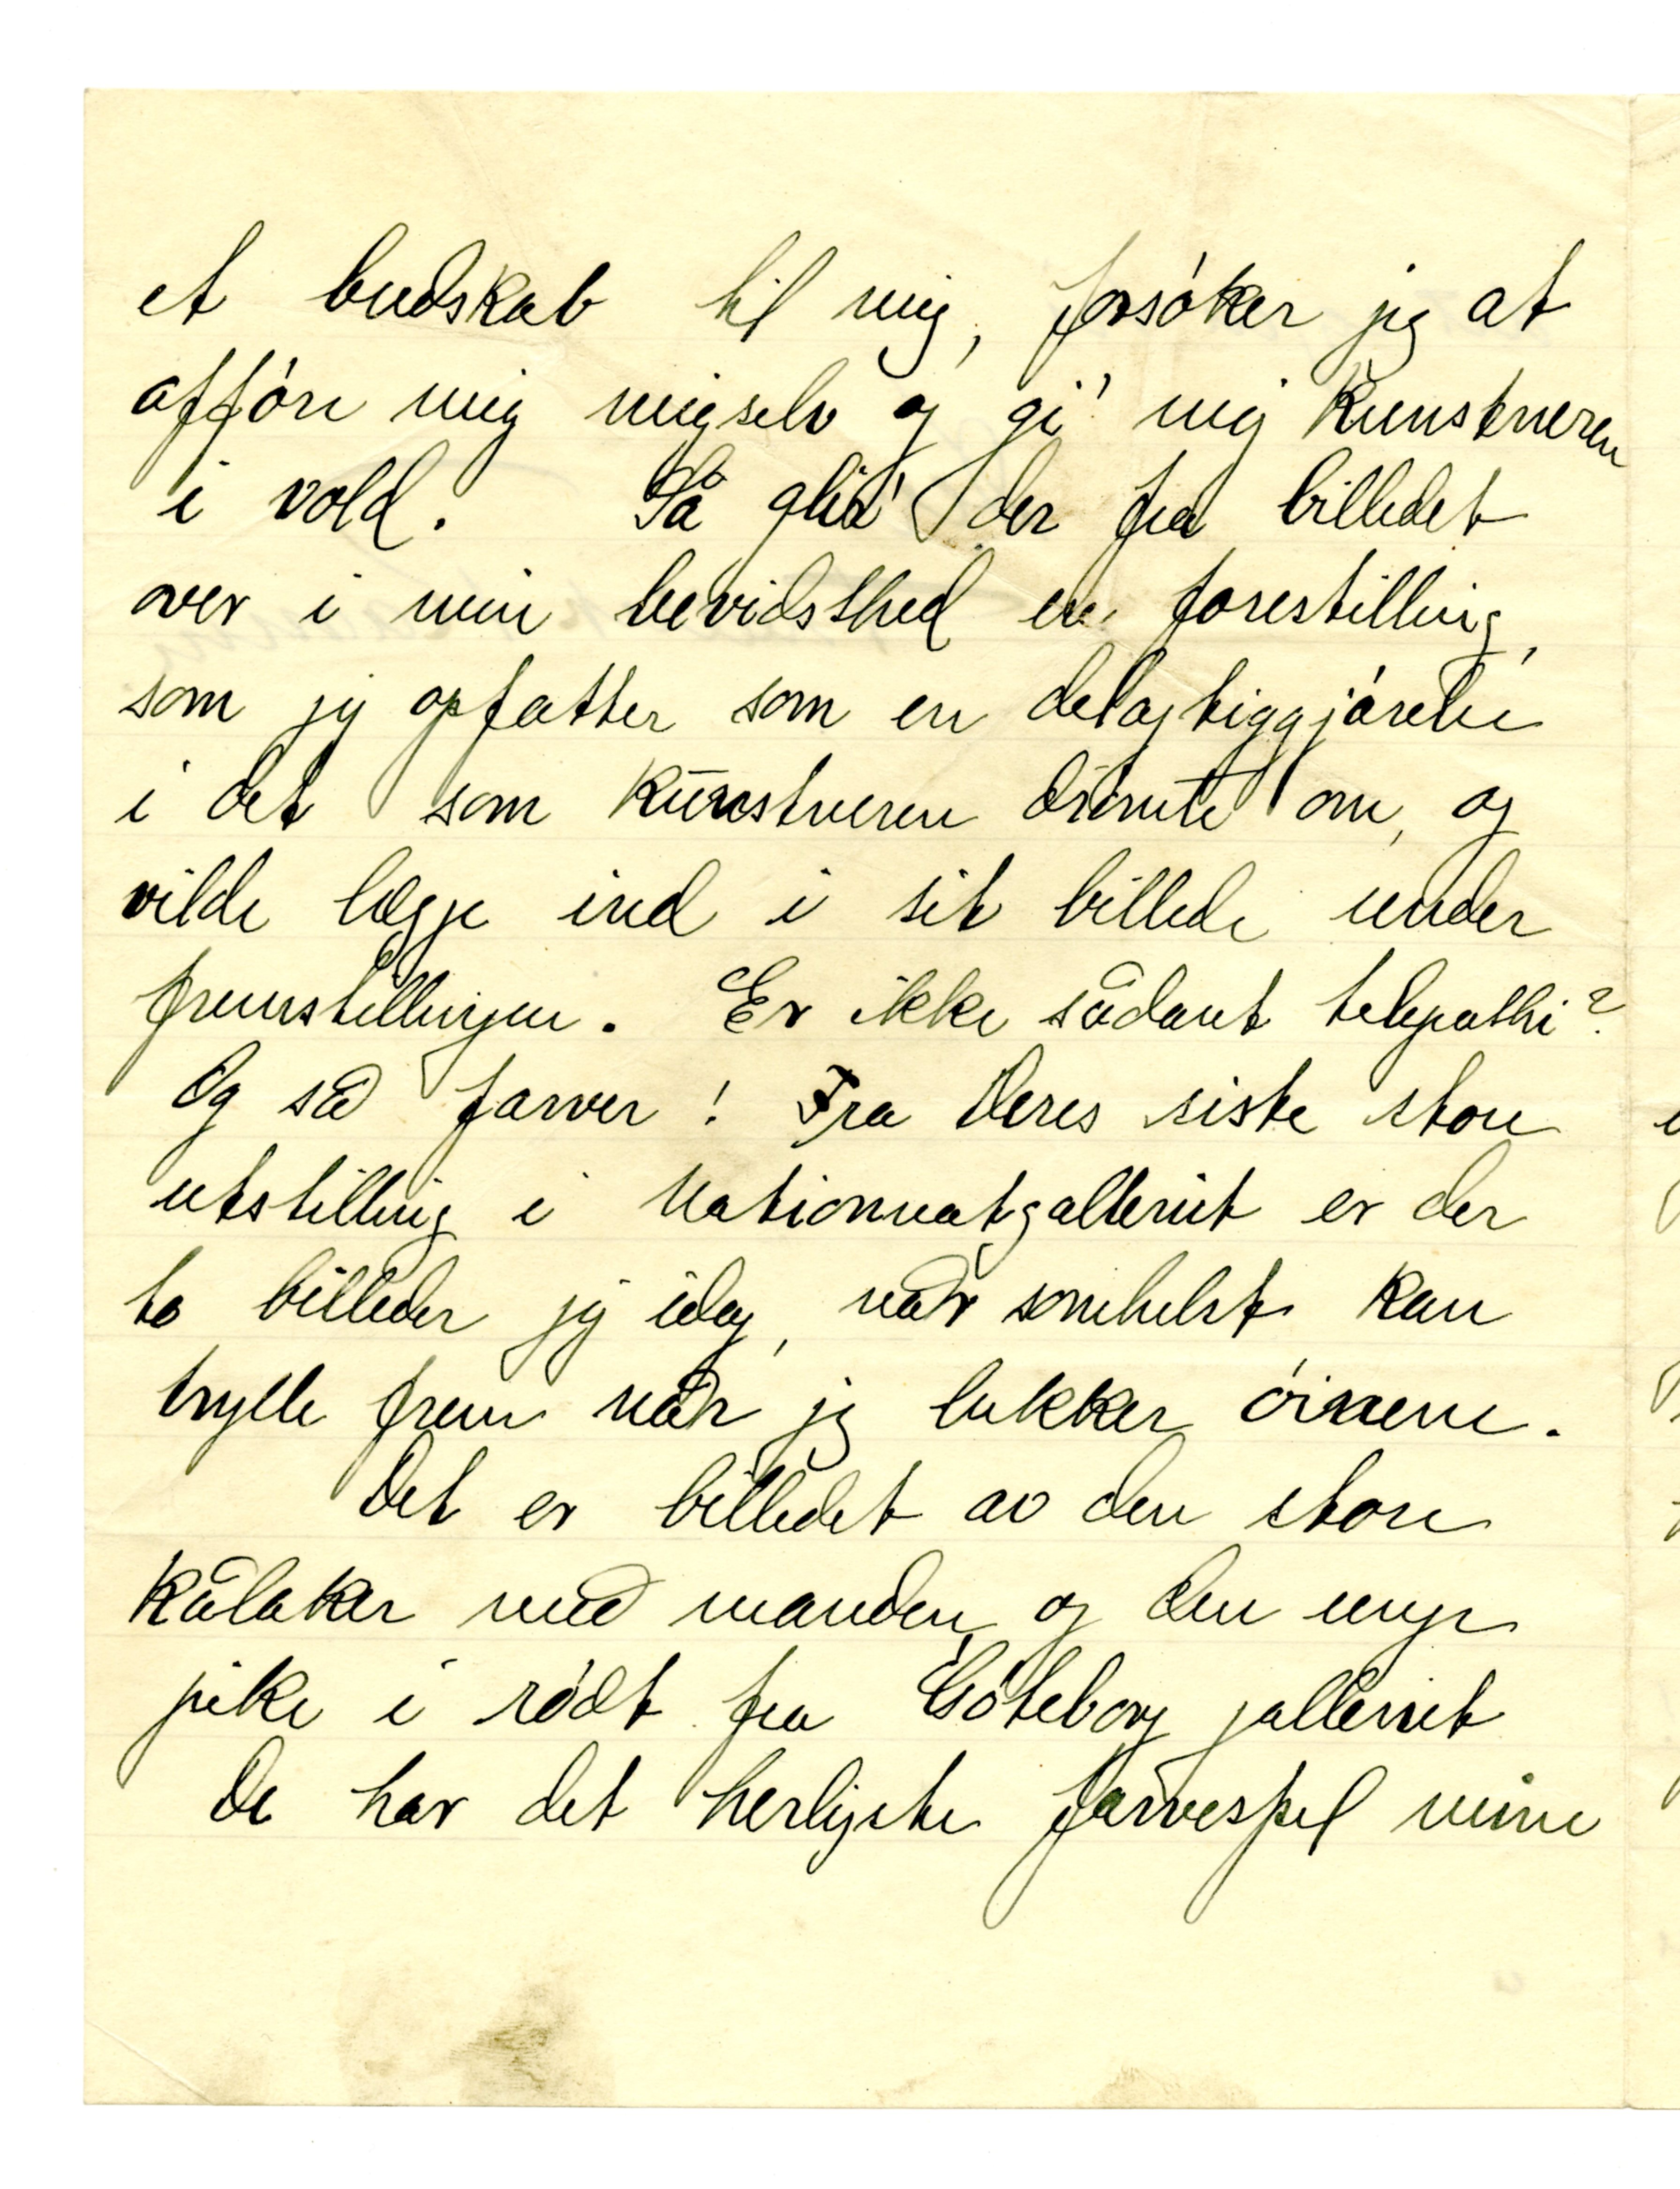 et budskab til mig, forsøker jeg at
afføre mig migselv og gi' mig kunstneren
i vold. Så glir' der fra billedet
over i min bevidsthed en forestilling,
som jeg opfatter som en delagtiggjørelse
i det som kunstneren drømte om, og
vilde lægge ind i sit billede under
fremstillingen. Er ikke sådant telepathi?
Og så farver! Fra Deres siste store
utstilling i Nationnalgalleriet er der
to billeder jeg idag, når somhelst kan
trylle frem når jeg lukker øinene.
Det er billedet av den store
kålaker med manden, og den unge
pike i rødt fra Göteborg galleriet
De har det herligste farvespel mine